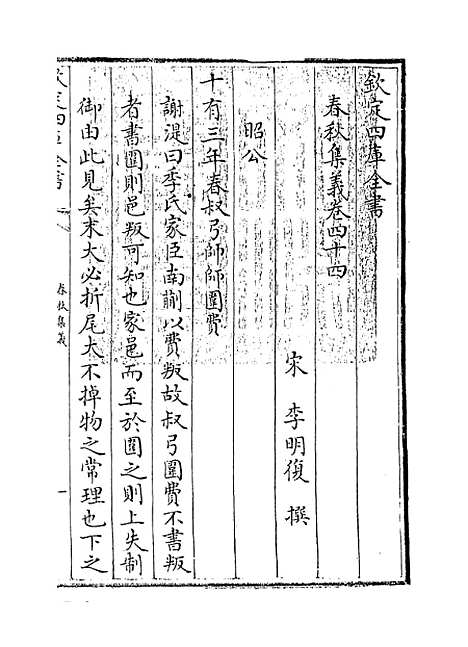 欽定四庫全書
春秋集義卷四十四
宋 李明復 撰
昭公
十有三年春叔弓帥師圍費
謝湜曰季氏家臣南蒯以費叛故叔弓圍費不書叛
者書圍則邑叛可知也家邑而至於圍之則上失制
御由此見矣末大必折尾大不掉物之常理也下之
欽定四庫全書
春秋集義
一